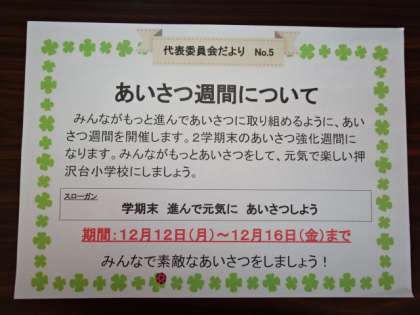 代表委員会だより　No.5
あいさつ週間について
みんながもっと進んであいさつに取り組めるように、あい
さつ週間を開催します。2学期末のあいさつ強化週間に
なります。みんながもっとあいさつをして、元気で楽しい押
沢台小学校にしましょう。
スローガン
学期末　進んで元気に　あいさつしよう
期間：12月12日（月）～12月16日（金）まで
みんなで素敵なあいさつをしましょう！